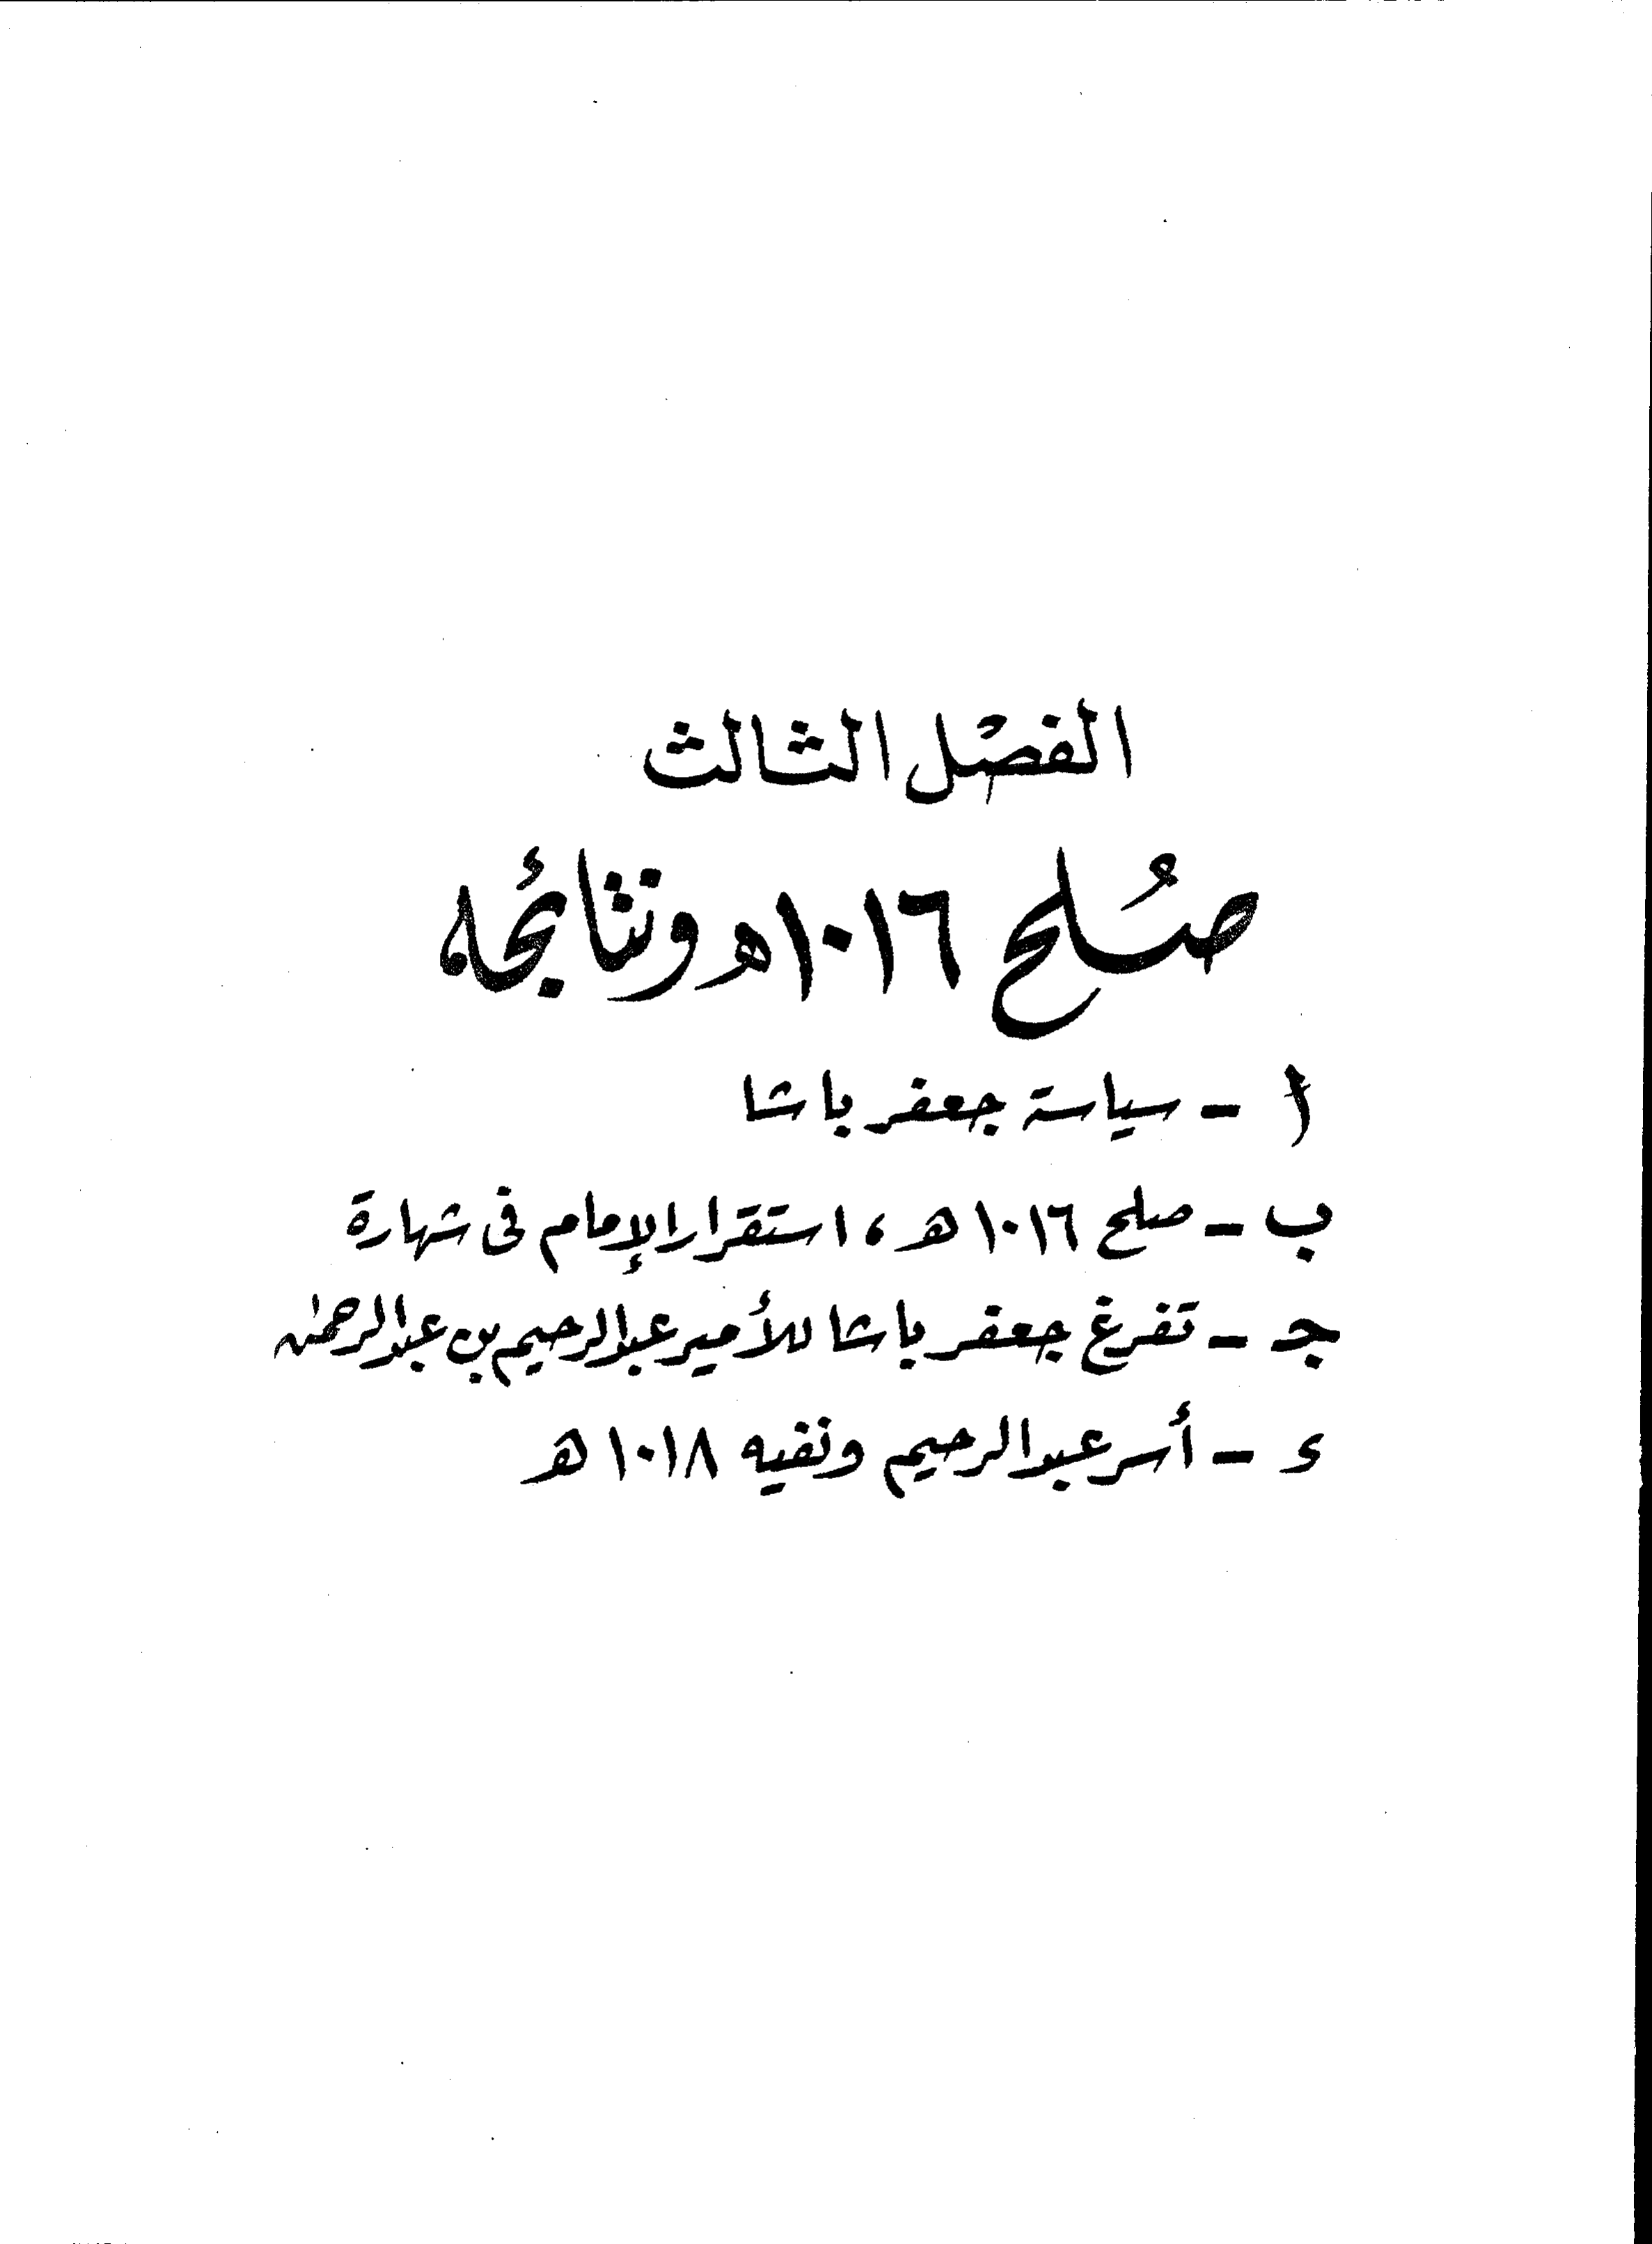 الفصْل الثالث
صُلح ١٠١٦هـ ونتائجه
أ - سياسة جعفر باشا
ب - صلح ١٠١٦هـ ، استقرار الإمام فى شهارة
جـ - تفرغ جعفر باشا للأمير عبدالرحيم بن عبدالرحمن
ء - أسر عبدالرحيم ونفيه ١٠١٨هـ